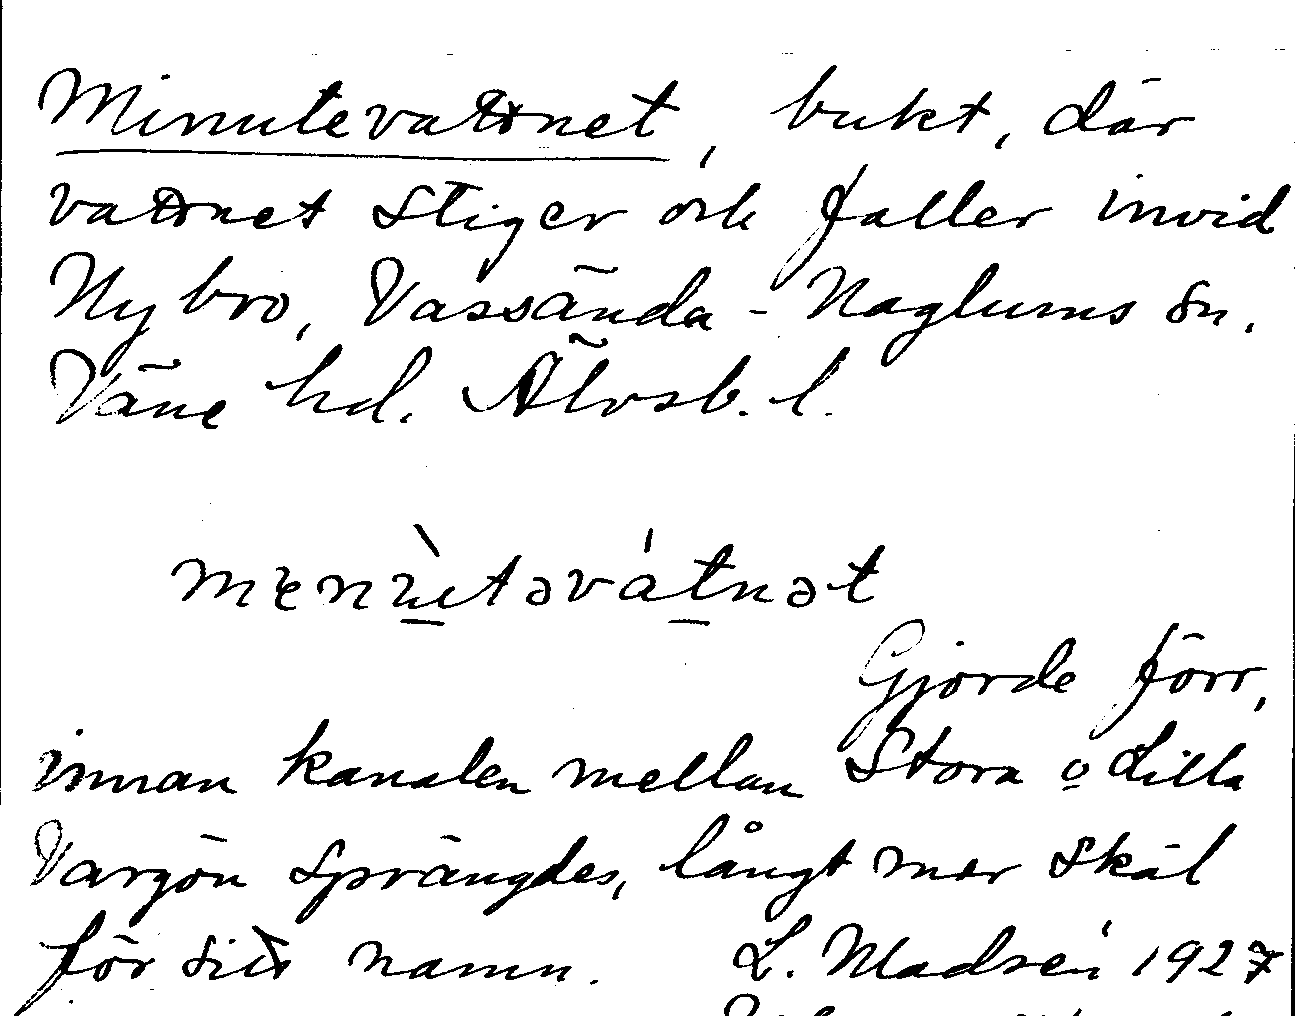 Minutevattnet, bukt, där
vattnet stiger och faller invid
Nybro, Vassända-Naglums sn.
Väne hd. Älvsb. l.
menùtəvátnət
Gjorde förr,
innan kanalen mellan Stora o Lilla
Vargön sprängdes, långt mer skäl
för sitt namn. L. Madsén 1927